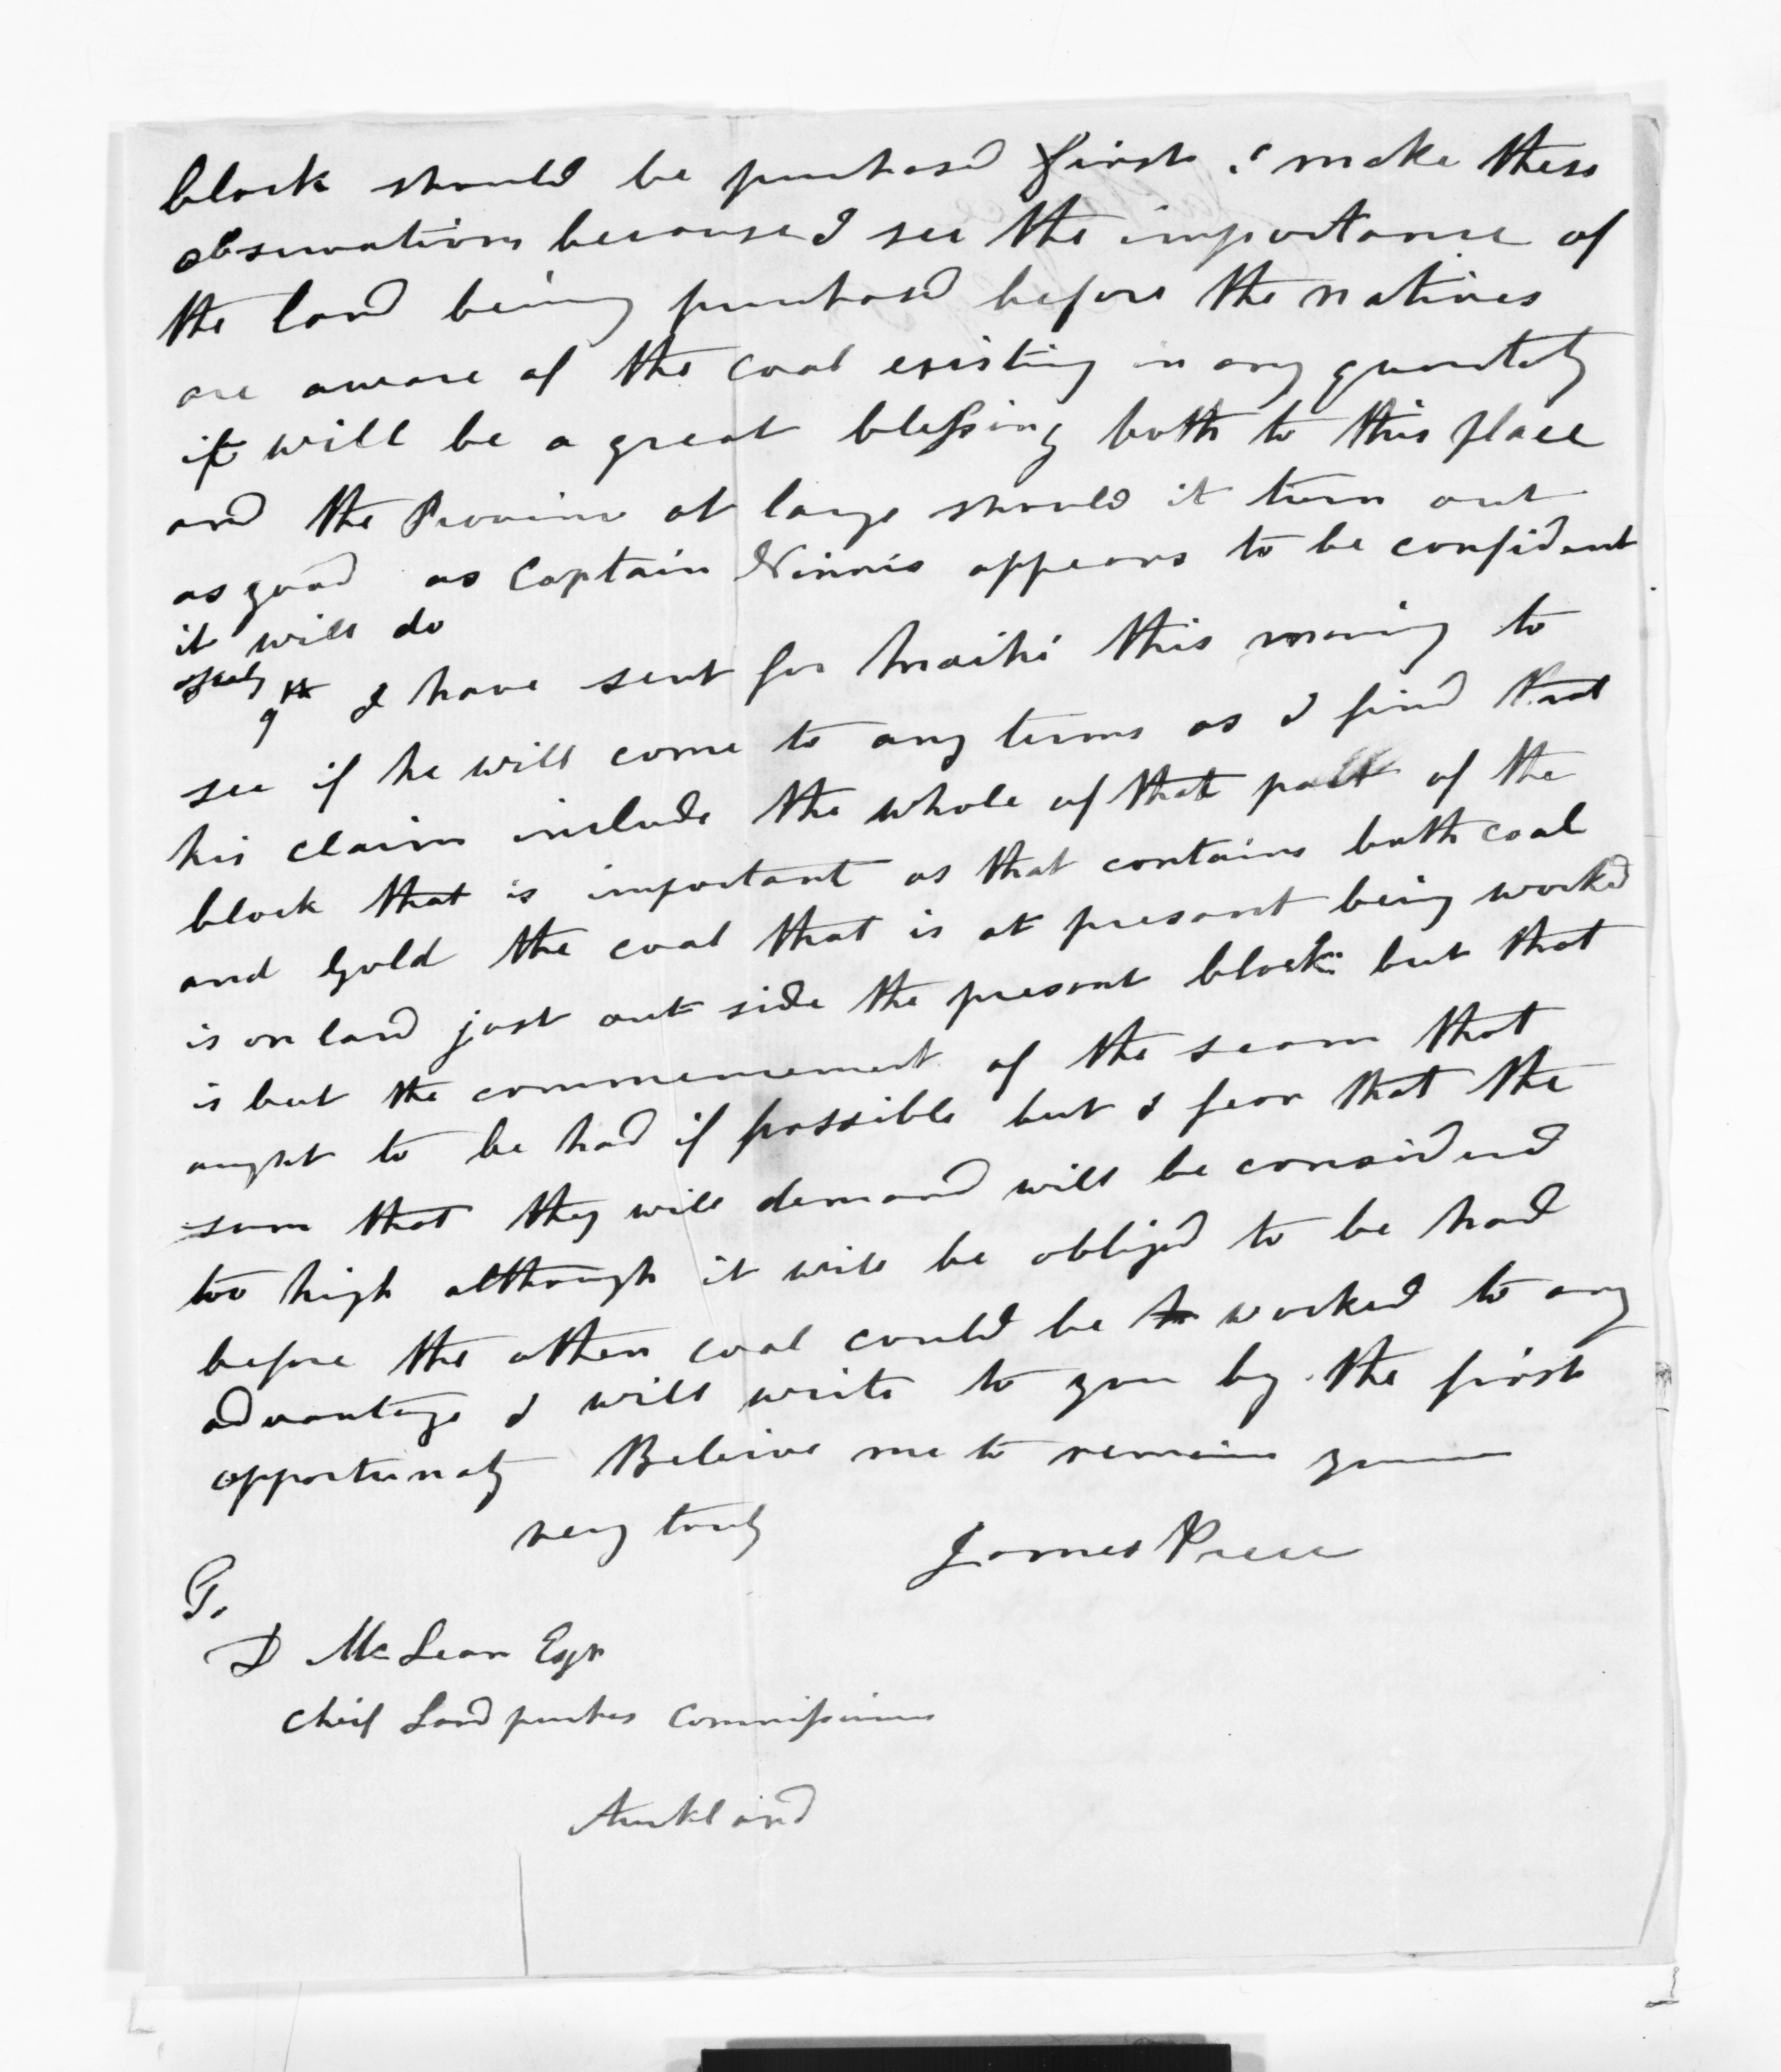 block should be purchased first I make these
observations because I see the importance of
the land being purchased before the natives
are aware of the coal existing in any quantety
it will be a great blessing both to this place
and the Province at large should it turn out
as good as Captain Ninnis appears to be confident
it will do
July 9th I have sent for Maihi this morning to
see if he will come to any terms as I find that
his claim include the whole of that part of the
block that is important as that contains both coal
and Gold the coal that is at present being worked
is on land just out side the present block but that
is but the commencement of the seam that
aught to be had if possible but I fear that the
sum that they will demand will be considered
too high although it will be obliged to be had
before the other coal could be worked to any
advantage I will write to you by the first
opportunaty Beleive me to remain yours
very truly
James Preece
D McLean Esqr
Cheif Land purches Commissioner
Auckland